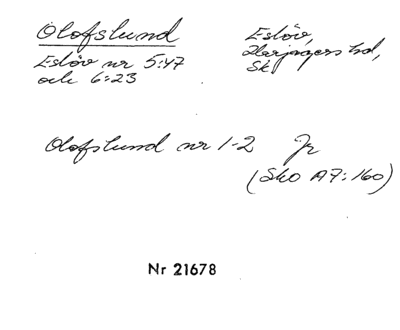 Olofslund
Eslöv nr 5:47
och 6:23
Eslöv,
Harjagers hd,
Sk
Olofslund nr 1-2 Jr
(Sko A7:160)
Nr 21678